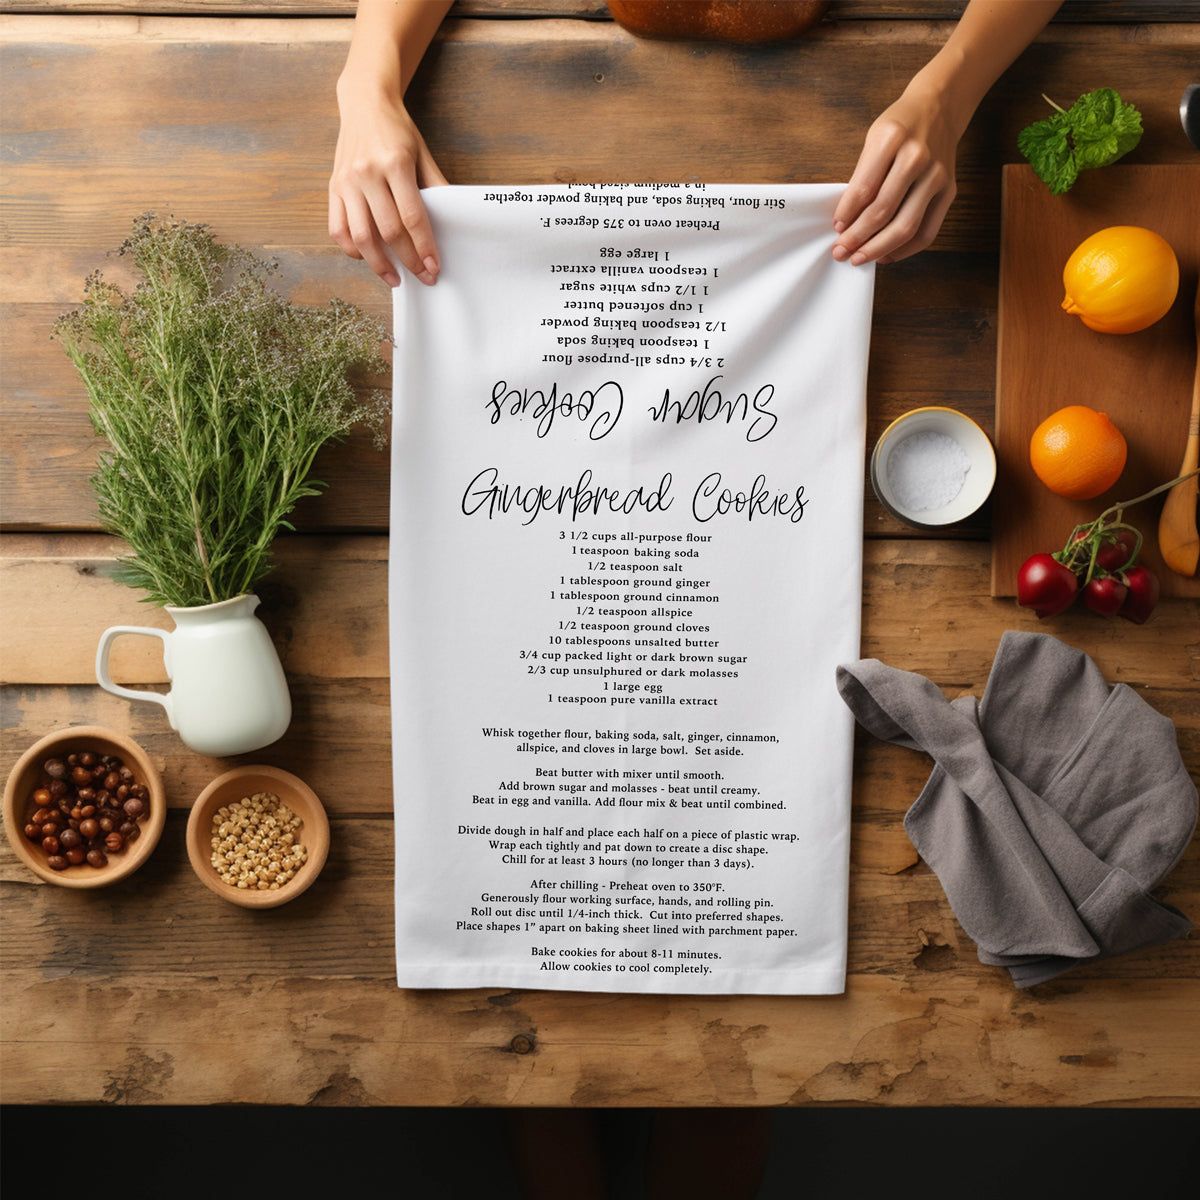 Sugar Cookies
2 3/4 cups all-purpose flour
1 teaspoon baking soda
1/2 teaspoon baking powder
1 cup softened butter
1 1/2 cups white sugar
1 teaspoon vanilla extract
1 large egg
Preheat oven to 375 degrees F.
Stir flour, baking soda, and baking powder together
in a medium sized bowl
Gingerbread Cookies
3 1/2 cups all-purpose flour
1 teaspoon baking soda
1/2 teaspoon salt
1 tablespoon ground ginger
1 tablespoon ground cinnamon
1/2 teaspoon allspice
1/2 teaspoon ground cloves
10 tablespoons unsalted butter
3/4 cup packed light or dark brown sugar
2/3 cup unsulphured or dark molasses
1 large egg
1 teaspoon pure vanilla extract
Whisk together flour, baking soda, salt, ginger, cinnamon,
allspice, and cloves in large bowl. Set aside.
Beat butter with mixer until smooth.
Add brown sugar and molasses - beat until creamy.
Beat in egg and vanilla. Add flour mix & beat until combined.
Divide dough in half and place each half on a piece of plastic wrap.
Wrap each tightly and pat down to create a disc shape.
Chill for at least 3 hours (no longer than 3 days).
After chilling - Preheat oven to 350°F.
Generously flour working surface, hands, and rolling pin.
Roll out disc until 1/4-inch thick. Cut into preferred shapes.
Place shapes 1” apart on baking sheet lined with parchment paper.
Bake cookies for about 8-11 minutes.
Allow cookies to cool completely.